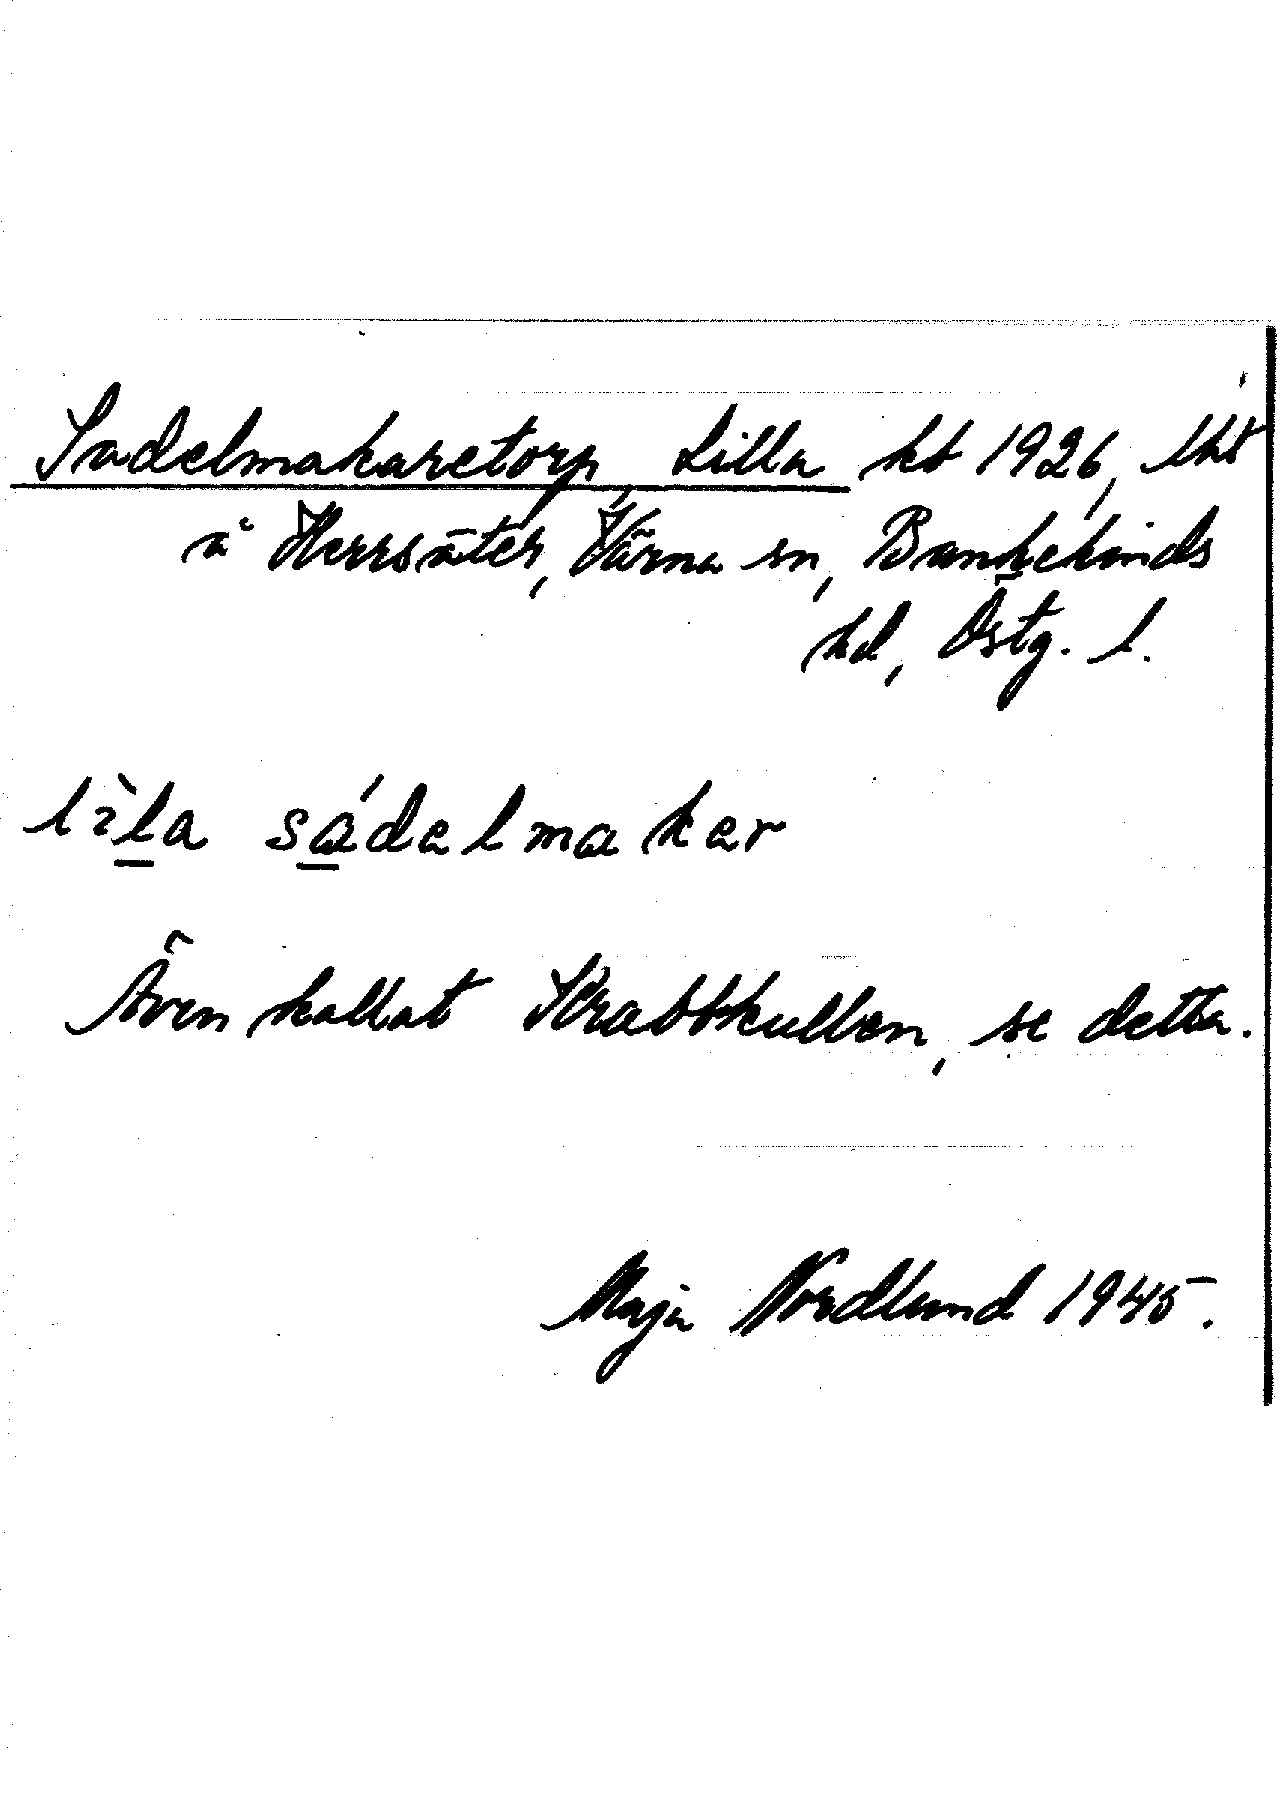 Sadelmakaretorp, Lilla kb 1926, lht
å Herrsäter, Värna sn, Bankekinds
hd, Östg. l.
lìla sádelmaker
Även kallat Krabbkullen, se detta.
Maja Nordlund 1945.